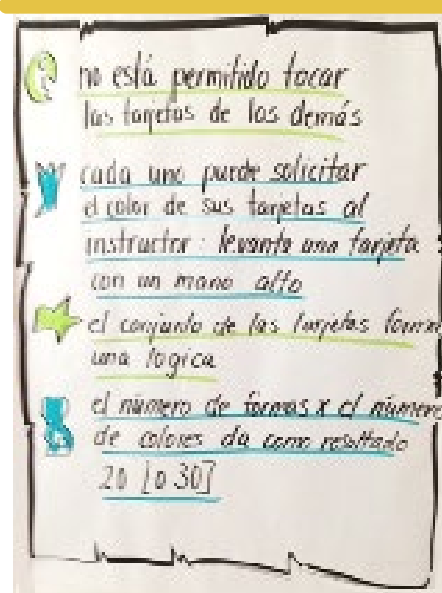 no está permitido tocar
las tarjetas de los demás
cada uno puede solicitar
el color de sus tarjetas al
instructor: levanta una tarjeta
con un mano alto
el conjunto de las tarjetas forma
una logica
el número de formas x el número
de colores da como resultado
20 [o 30]